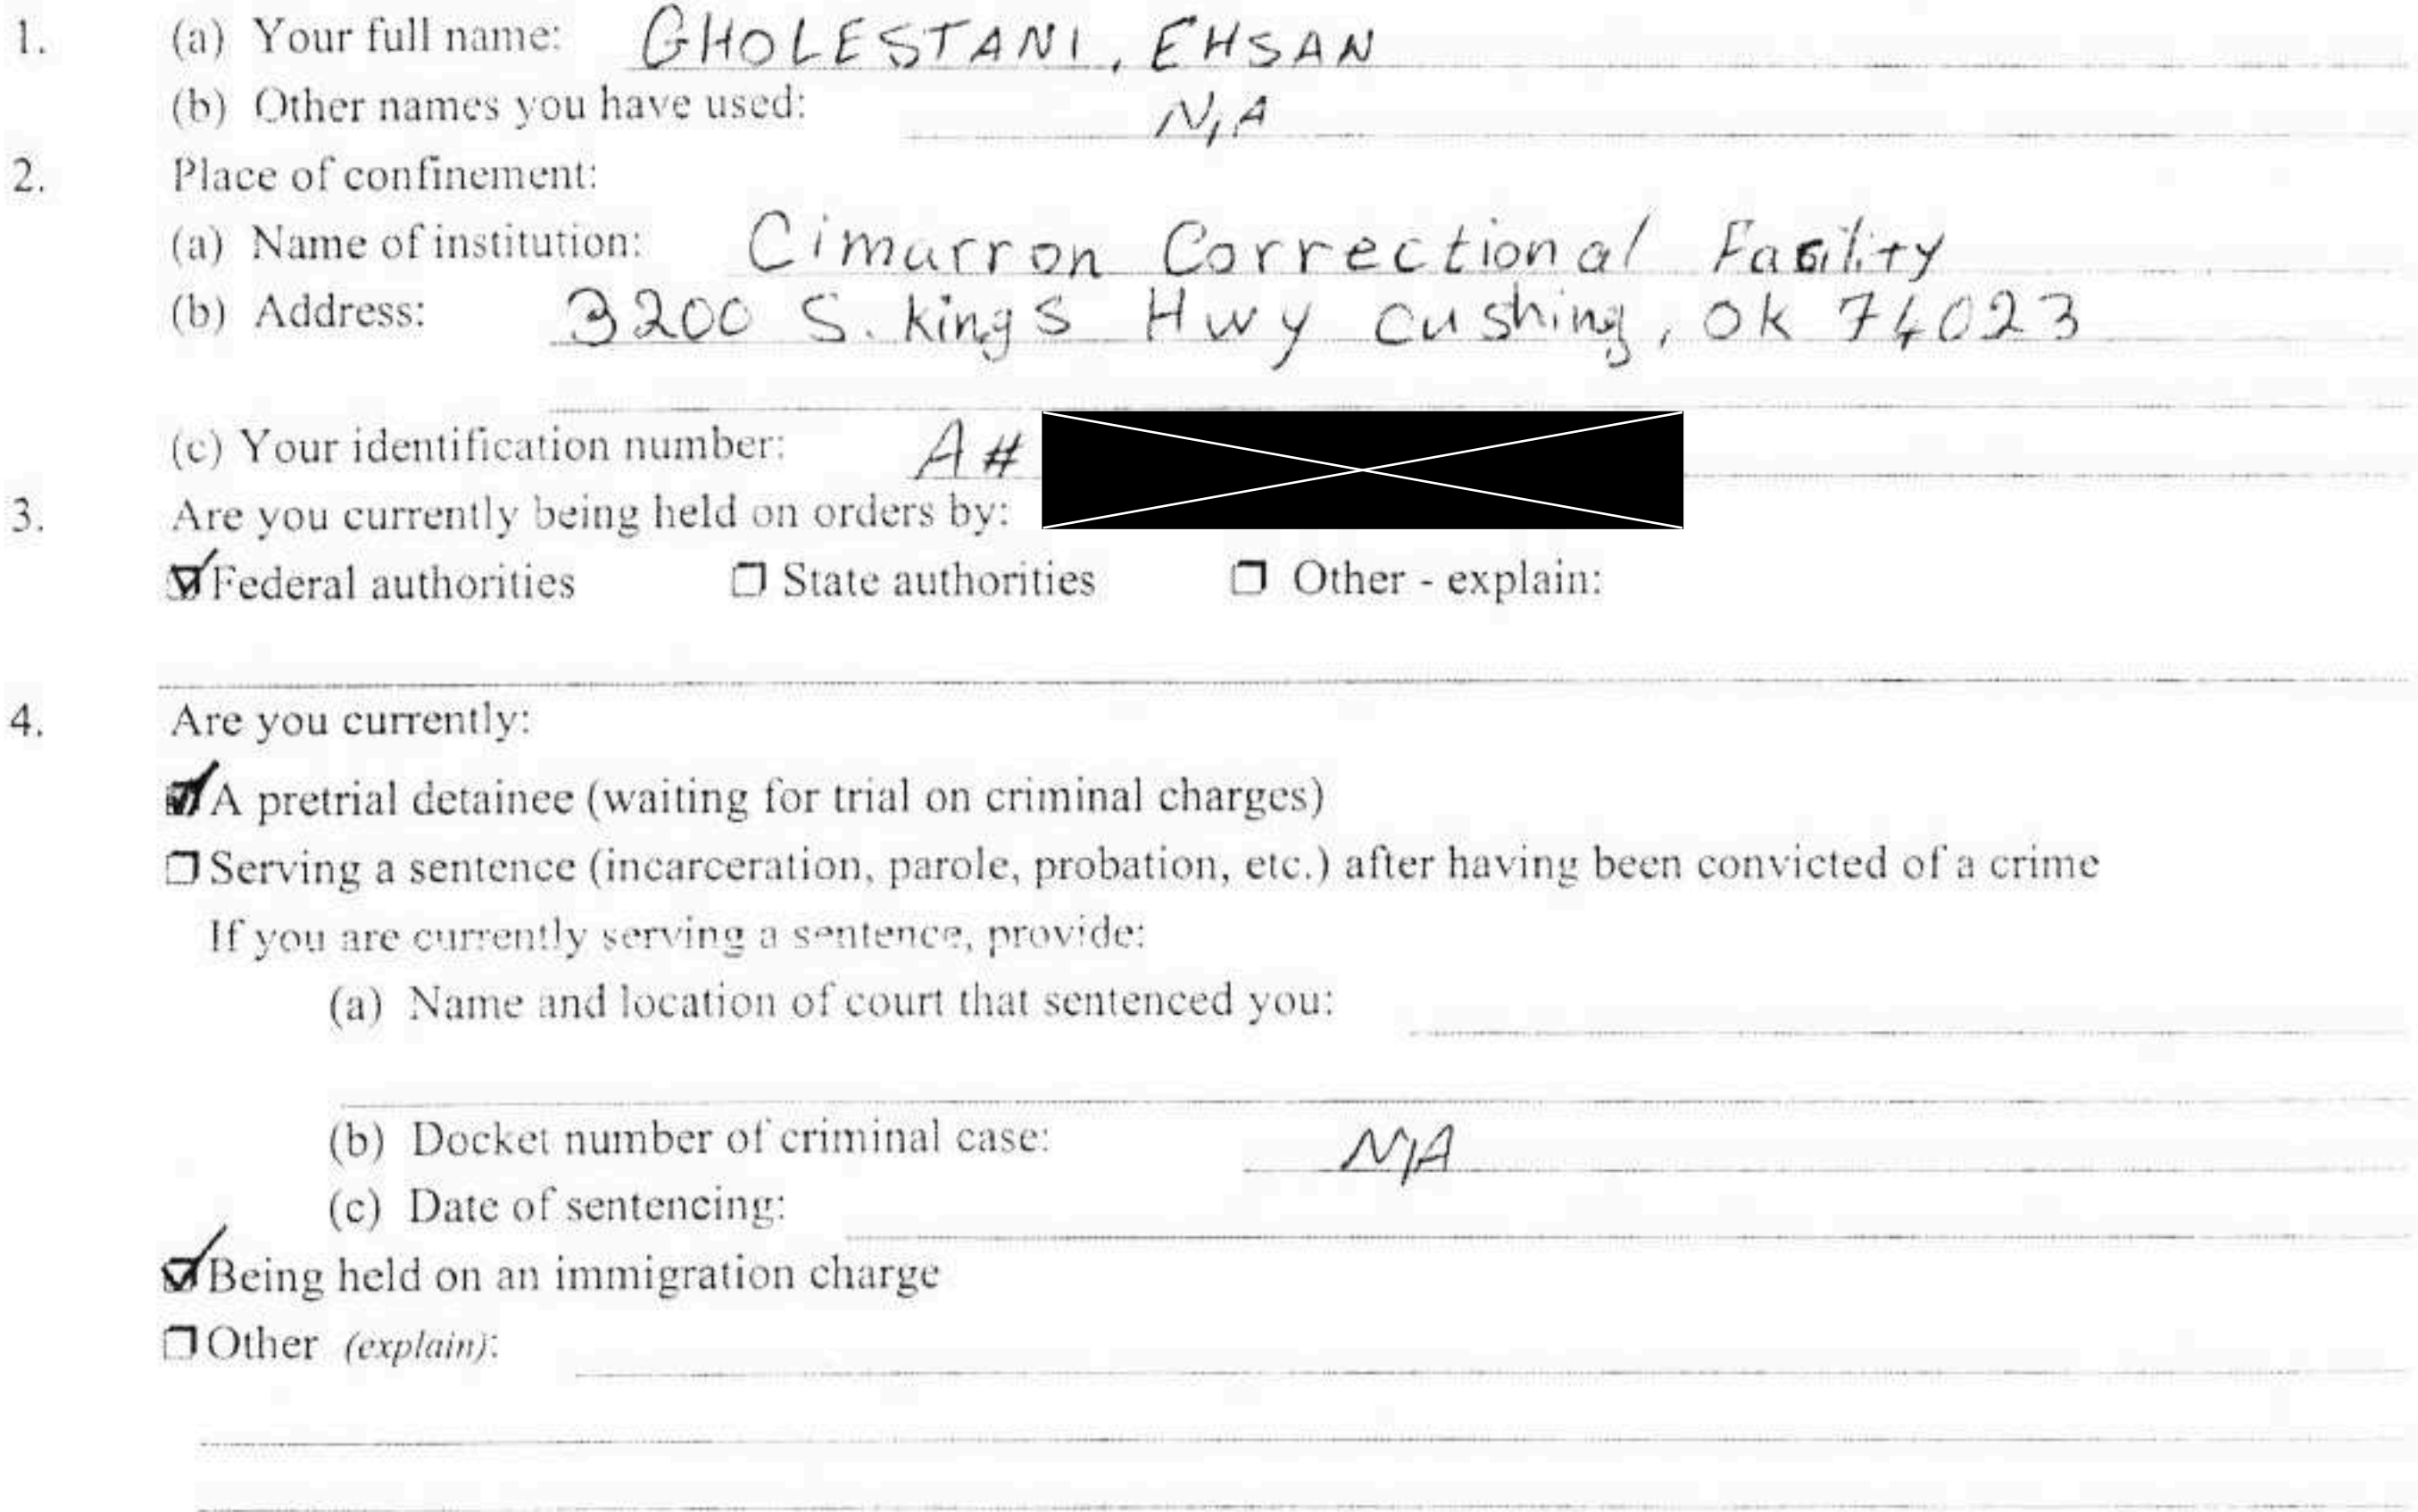 1. (a) Your full name: GHOLESTANI, EHSAN
(b) Other names you have used: N/A
2. Place of confinement:
(a) Name of institution: Cimarron Correctional Facility
(b) Address: 3200 S. kings Hwy cushing, ok 74023
(c) Your identification number: A#
3. Are you currently being held on orders by:
☑ Federal authorities ☐ State authorities ☐ Other - explain:
4. Are you currently:
☑ A pretrial detainee (waiting for trial on criminal charges)
☐ Serving a sentence (incarceration, parole, probation, etc.) after having been convicted of a crime
If you are currently serving a sentence, provide:
(a) Name and location of court that sentenced you:
(b) Docket number of criminal case: N/A
(c) Date of sentencing:
☑ Being held on an immigration charge
☐ Other (explain):